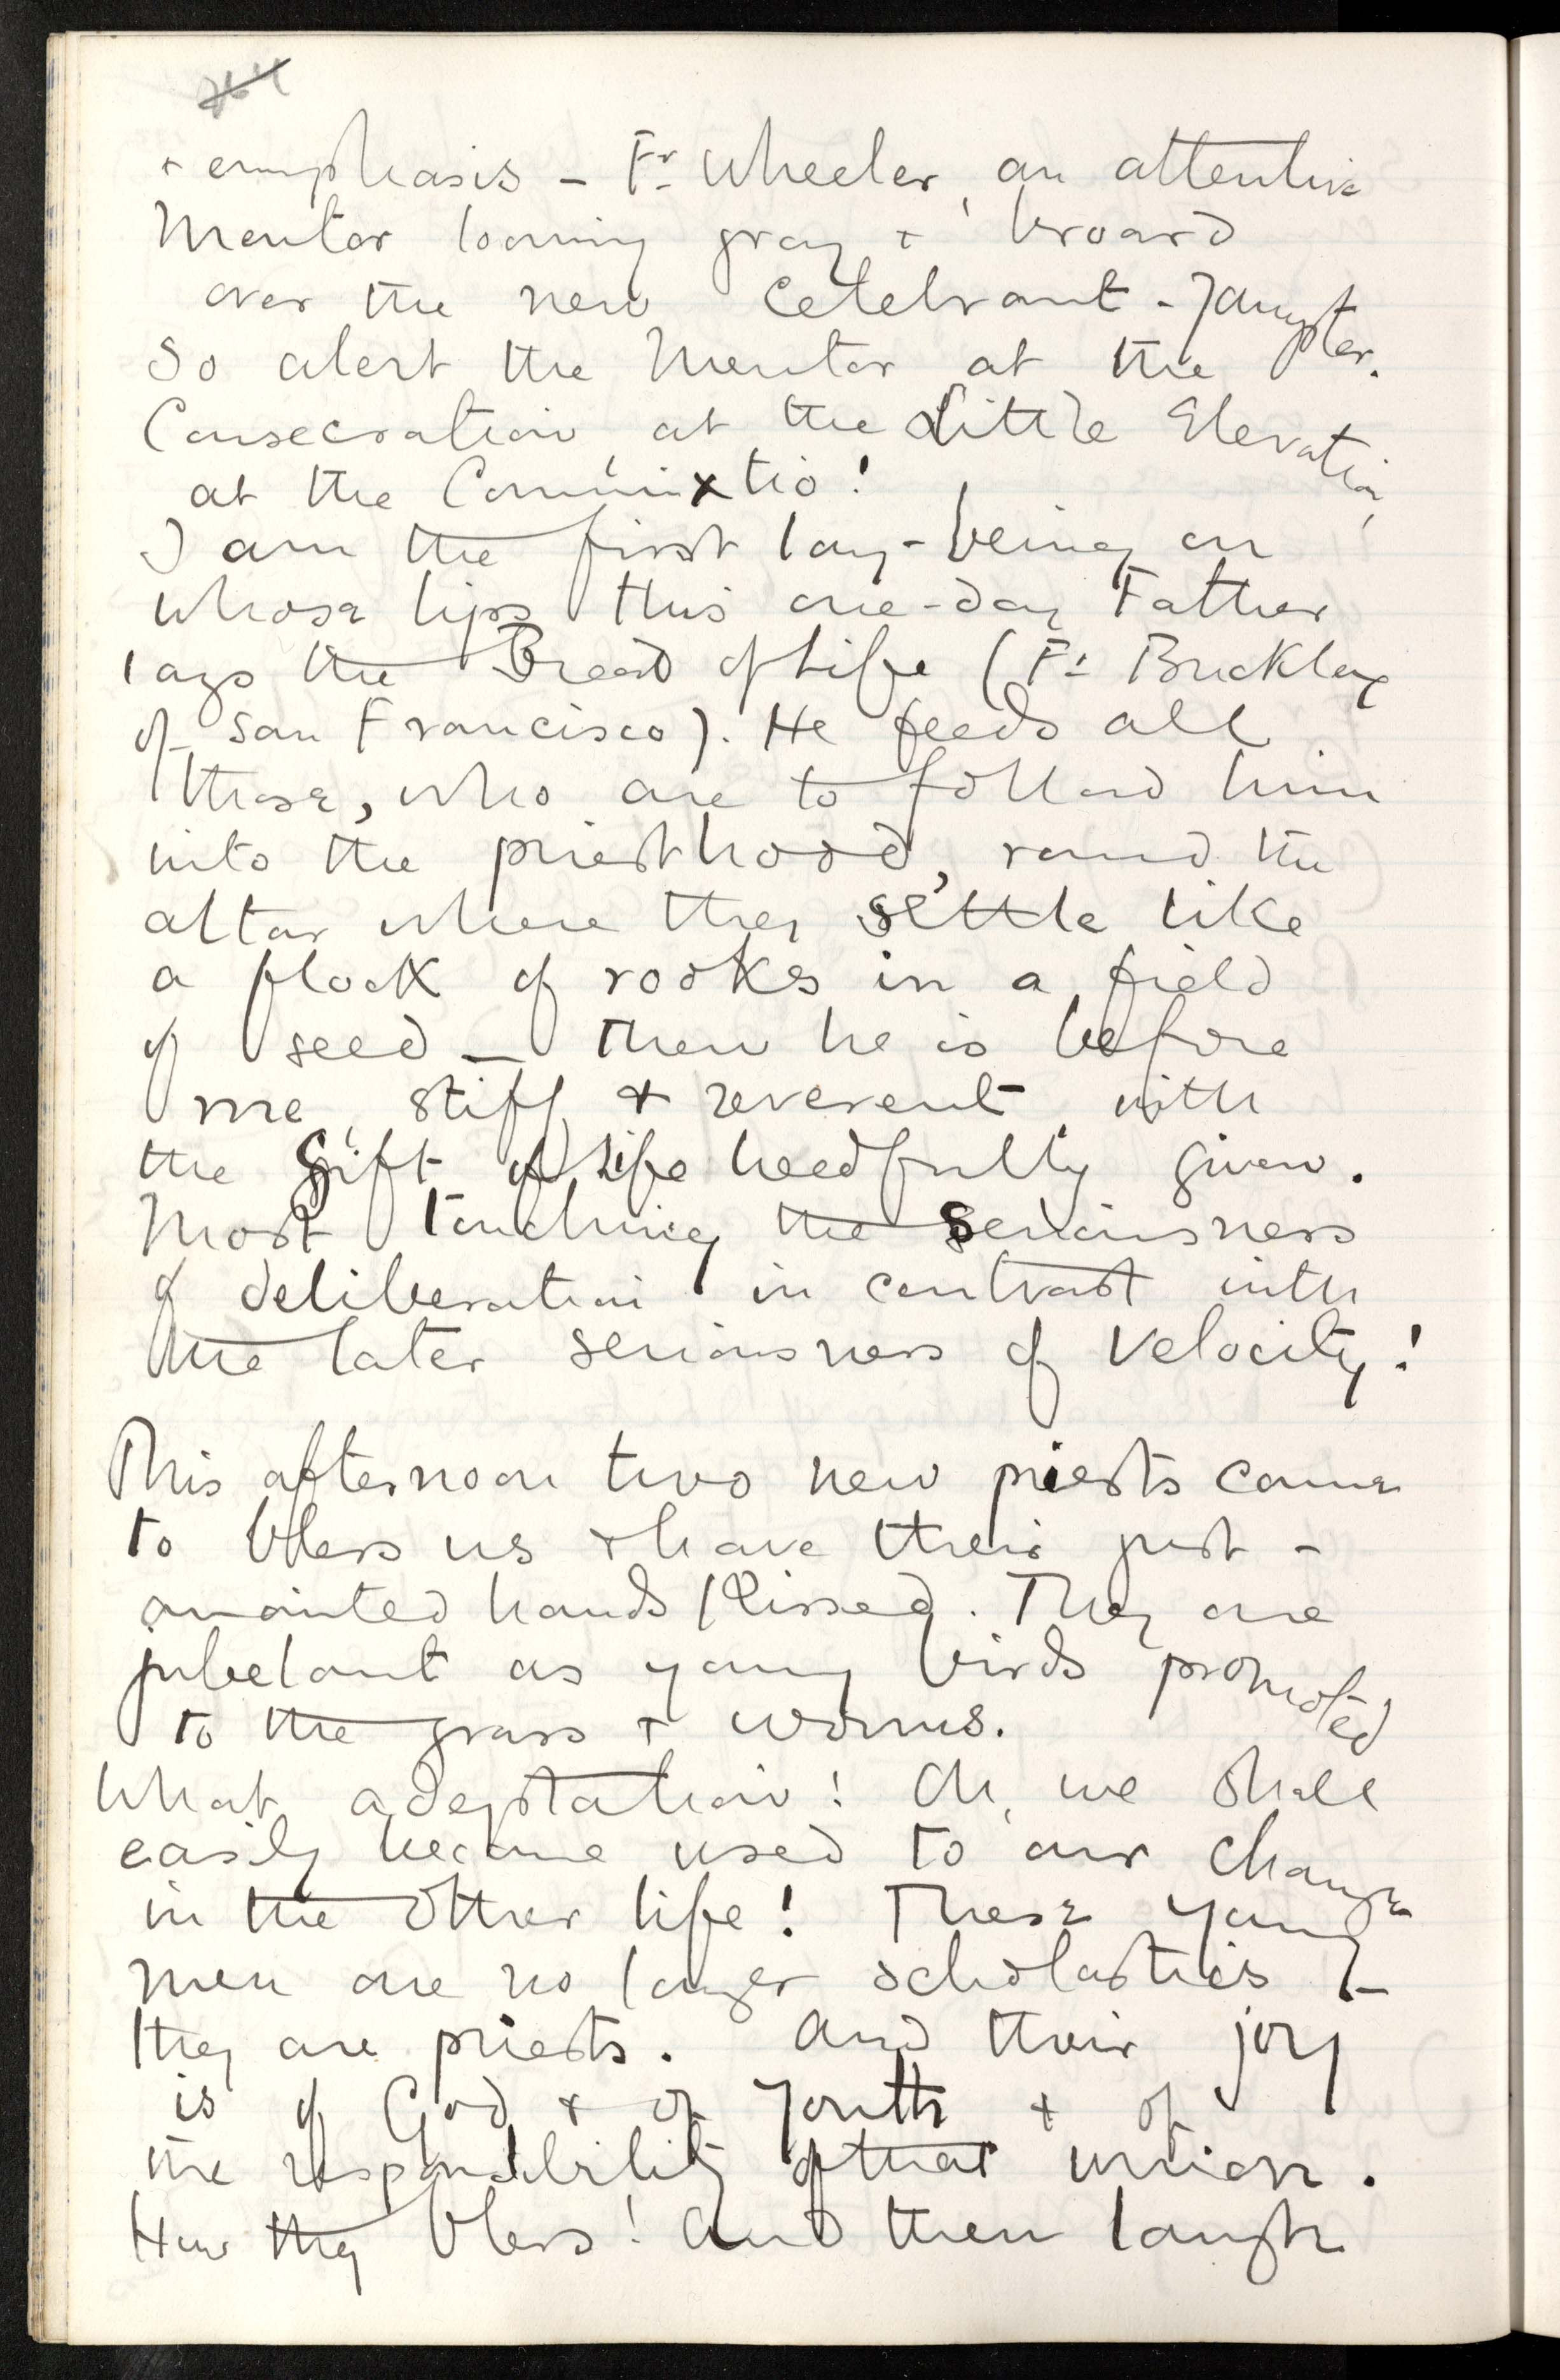 + emphasis – Fr Wheeler, an attentive
Mentor looming gray + broard
over the new Celebrant – Youngster.
So alert the Mentor at the
Consecration, at the Little Elevation,
at the Commixtio!
I am the first lay-being on
whose lips this one-day Father
lays the Bread of Life (Fr Buckley
of San Francisco). He feeds all
those, who are to follow him
into the priesthood, round the
altar where they settle like
a flock of rooks in a field
of seed – Then he is before
me, stiff + reverent, with
the Gift of Life heedfully given.
Most touching the seriousness
of deliberation in contrast with
the later seriousness of Velocity!
This afternoon two new priests came
to bless us + have their just-
anointed hands kissed. They are
jubelant as young birds promoted
to the grass + worms.
What adeptation! Oh, we shall
easily become used to our change
in the other life! These young
men are no longer scholastics –
they are priests. And their joy
is of God + of Youth + of
the responsibility of that union.
How they bless! And then laugh